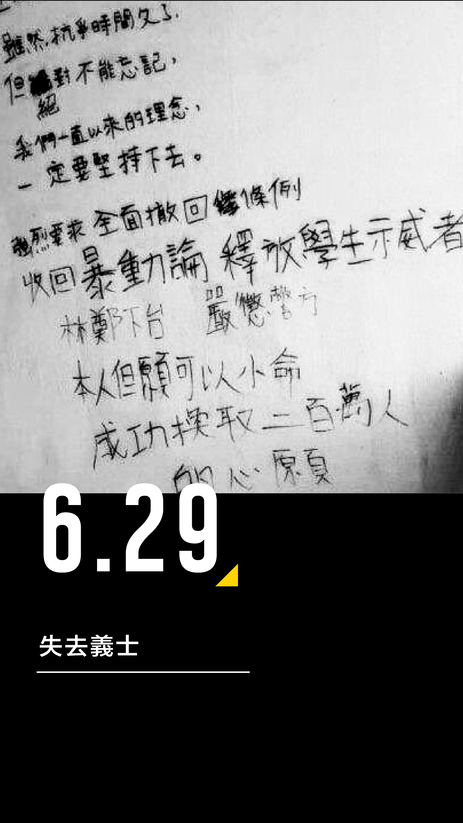 雖然抗爭時間久了,
但絕對不能忘記,
我們一直以來的理念,
一定要堅持下去。
強烈要求全面撤回條例
收回暴動論 釋放學生示威者
林鄭下台 嚴懲警方
本人但願可以小命
成功換取二百萬人
的心願
6.29
失去義士